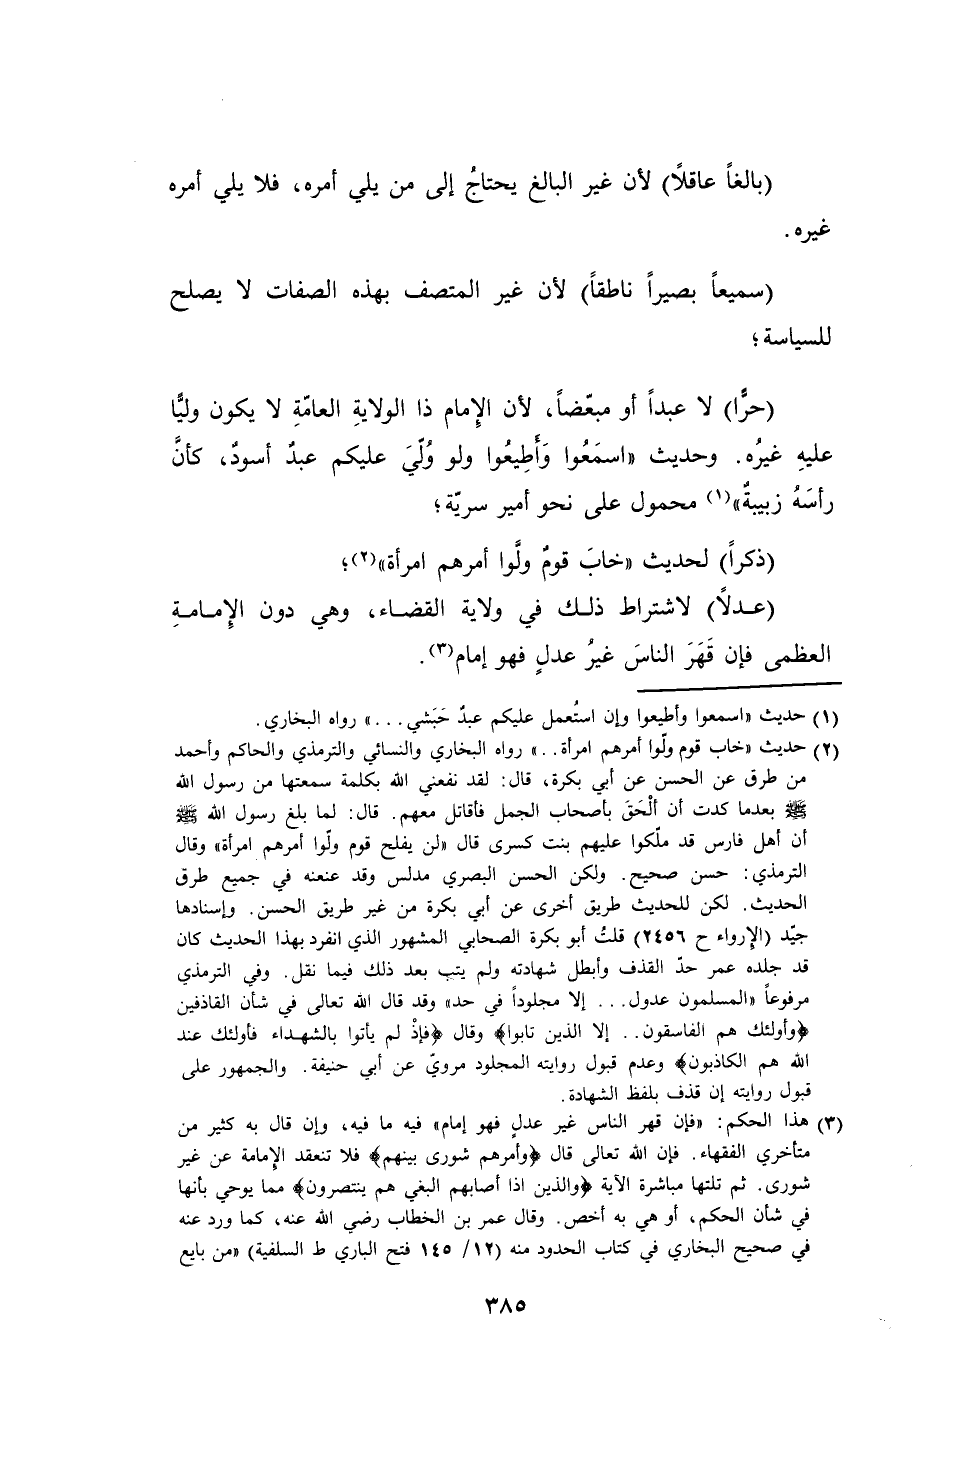 (بالغاً عاقلًا) لأن غير البالغ يحتاجُ إلى من يلي أمره، فلا يلي أمره
غيره.
(سميعاً بصيراً ناطقاً) لأن غير المتصف بهذه الصفات لا يصلح
للسياسة؛
(حرًّا) لا عبداً أو مبعّضاً، لأن الإمام ذا الولايةِ العامّةِ لا يكون وليًّا
عليهِ غيرُه. وحديث «اسمَعُوا وَأَطِيعُوا ولو وُلّيَ عليكم عبدٌ أسودٌ، كأنَّ
رأسَهُ زبيبةٌ»(١) محمول على نحو أمير سريّة؛
(ذكراً) لحديث «خابَ قومٌ ولَّوا أمرهم امرأة»(٢)؛
(عـدلًا) لاشتراط ذلـك في ولاية القضـاء، وهي دون الإمـامـةِ
العظمى فإن قَهَرَ الناسَ غيرُ عدلٍ فهو إمام(٣).
(١) حديث «اسمعوا وأطيعوا وإن استُعمل عليكم عبدٌ حَبَشي...» رواه البخاري.
(٢) حديث «خاب قوم ولّوا أمرهم امرأة..» رواه البخاري والنسائي والترمذي والحاكم وأحمد
من طرق عن الحسن عن أبي بكرة، قال: لقد نفعني الله بكلمة سمعتها من رسول الله
ﷺ بعدما كدت أن ألْحَقَ بأصحاب الجمل فأقاتل معهم. قال: لما بلغ رسول الله ﷺ
أن أهل فارس قد ملّكوا عليهم بنت كسرى قال «لن يفلح قوم ولّوا أمرهم امرأة» وقال
الترمذي: حسن صحيح. ولكن الحسن البصري مدلس وقد عنعنه في جميع طرق
الحديث. لكن للحديث طريق أخرى عن أبي بكرة من غير طريق الحسن. وإسنادها
جيّد (الإرواء ح ٢٤٥٦) قلتُ أبو بكرة الصحابي المشهور الذي انفرد بهذا الحديث كان
قد جلده عمر حدّ القذف وأبطل شهادته ولم يتب بعد ذلك فيما نقل. وفي الترمذي
مرفوعاً «المسلمون عدول... إلا مجلوداً في حد» وقد قال الله تعالى في شأن القاذفين
﴿وأولئك هم الفاسقون.. إلا الذين تابوا﴾ وقال ﴿فإذْ لم يأتوا بالشهـداء فأولئك عند
الله هم الكاذبون﴾ وعدم قبول روايته المجلود مرويّ عن أبي حنيفة. والجمهور على
قبول روايته إن قذف بلفظ الشهادة.
(٣) هذا الحكم: «فإن قهر الناس غير عدلٍ فهو إمام» فيه ما فيه، وإن قال به كثير من
متأخري الفقهاء. فإن الله تعالى قال ﴿وأمرهم شورى بينهم﴾ فلا تنعقد الإمامة عن غير
شورى. ثم تلتها مباشرة الآية ﴿والذين اذا أصابهم البغي هم ينتصرون﴾ مما يوحي بأنها
في شأن الحكم، أو هي به أخص. وقال عمر بن الخطاب رضي الله عنه، كما ورد عنه
في صحيح البخاري في كتاب الحدود منه (١٢/ ١٤٥ فتح الباري ط السلفية) «من بايع
٣٨٥